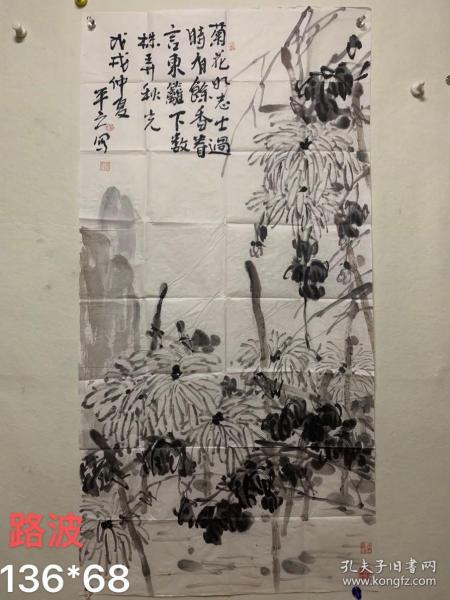 菊花如志士過
時有餘香眷
言東籬下数
株弄秋光
戊戌仲夏
平之写
路波
136*68
孔夫子旧书网
www.kongfz.com